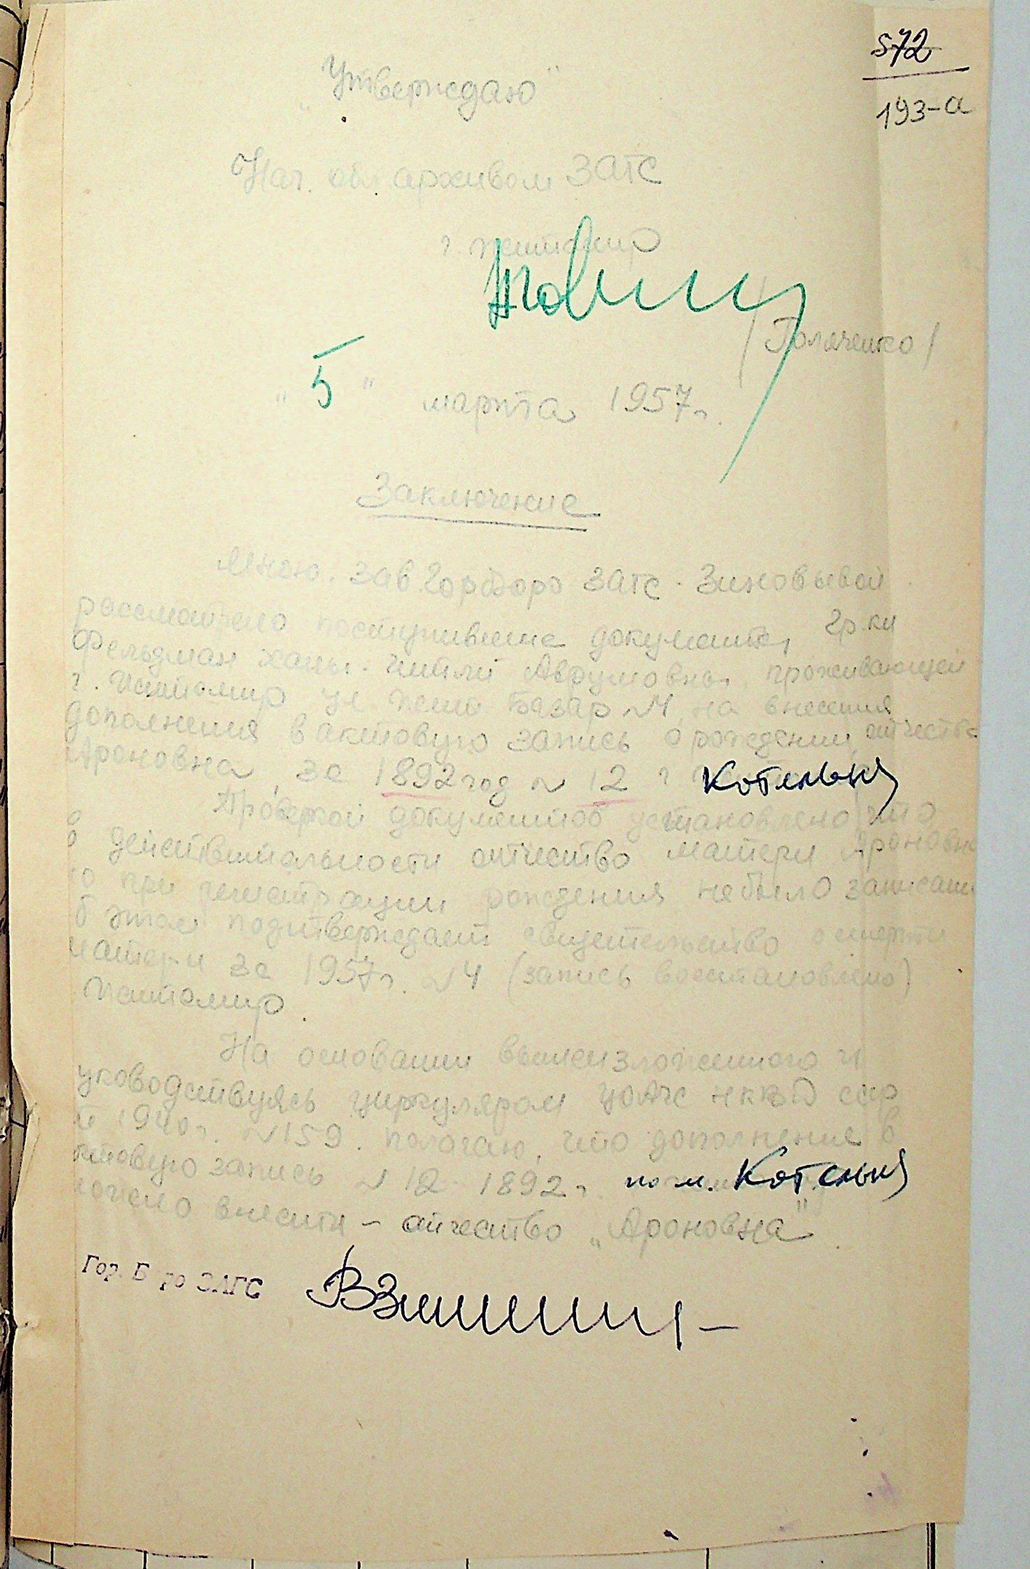 572
193-а
"Утверждаю"
Нач. обл архивом ЗАГС
г. Житомир
/Поляченко/
"5" марта 1957г.
Заключение
Мною. Зав. Горбюро ЗАГС. Зиновьевой
рассмотрено поступившие документы гр.ки
Фельдман Ханы. Аврумовны, проживающей
г. Житомир ул Базар №4, на внесения
дополнения в актовую запись о рождении, отчество
Ароновна за 1892 год № 12 Котельня
Проверкой документов установлено что
в действительности отчество матери Ароновна
но при регистрации рождения небыло записано
об этом подтверждает свидетельство о смерти
матери за 1957г. №4 (запись восстановлено)
Житомир.
На основании вышеизложенного и
уководствуясь циркуляром НКВД ссср
1940г. №159. полагаю, что дополнение в
актовую запись №12 1892г. по м. Котельня
внесити - отчество "Ароновна"
Гор. Б ро ЗАГС